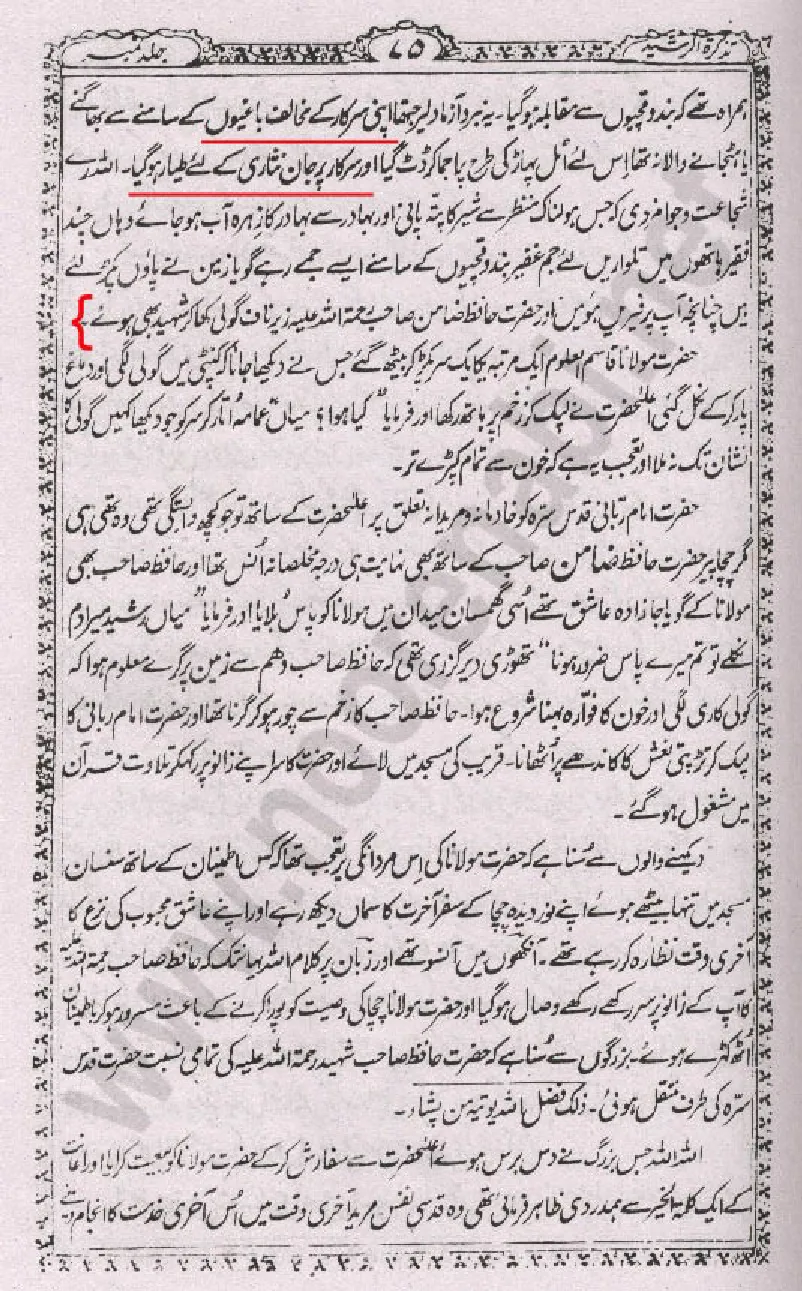 تذکرۃ الرشید
۷۵
جلد نمبر
ہمراہ تھے کہ بندوقچیوں سے مقابلہ ہو گیا۔ یہ نبرد آزما دلیر جتھا اپنی سرکار کے مخالف باغیوں کے سامنے سے بھاگنے
یا ہٹجانے والا نہ تھا اِس لئے اٹل پہاڑ کی طرح پا جما کر ڈٹ گیا اور سرکار پر جان نثاری کے لئے طیار ہو گیا۔ اللہ رے
شجاعت وجوانمردی کہ جس ہولناک منظر سے شیر کا پتہ پانی اور بہادر سے بہادر کا زہرہ آب ہو جائے وہاں چند
فقیر ہاتھوں میں تلواریں لئے جم غفیر بندوقچیوں کے سامنے ایسے جمے رہے گویا زمین نے پاؤں پکڑ لئے
ہیں چنانچہ آپ پر فیریں ہوئیں اور حضرت حافظ ضامن صاحب رحمۃ اللہ علیہ زیر ناف گولی کھا کر شہید بھی ہوئے
حضرت مولانا قاسم العلوم ایک مرتبہ یکایک سر پکڑ کر بیٹھ گئے جس نے دیکھا جانا کہ کنپٹی میں گولی لگی اور دماغ
پار کر کے نکل گئی اعلٰحضرت نے لپک کر زخم پر ہاتھ رکھا اور فرمایا "کیا ہوا؟ میاں" عمامہ اُتار کر سر کو جو دیکھا کہیں گولی کا
نشان تک نہ ملا اور تعجب یہ ہے کہ خون سے تمام کپڑے تر۔
حضرت امام ربانی قدس سرہ کو خادمانہ ومریدانہ تعلق پر اعلٰحضرت کے ساتھ تو جو کچھ وابستگی تھی وہ تھی ہی
مگر چچا پیر حضرت حافظ ضامن صاحب کے ساتھ بھی نہایت ہی درجہ مخلصانہ اُنس تھا اور حافظ صاحب بھی
مولانا کے گویا جانزادہ عاشق تھے اُسی گھمسان میدان میں مولانا کو پاس بُلایا اور فرمایا "میاں رشید میرا دم
نکلے تو تم میرے پاس ضرور ہونا" تھوڑی دیر گزری تھی کہ حافظ صاحب دھم سے زمین پر گرے معلوم ہوا کہ
گولی کاری لگی اور خون کا فوّارہ بہنا شروع ہوا۔ حافظ صاحب کا زخم سے چور ہو کر گرنا تھا اور حضرت امام ربانی کا
لپک کر تڑپتی نعش کا کاندھے پر اُٹھانا۔ قریب کی مسجد میں لائے اور حضرت کا سر اپنے زانو پر رکھکر تلاوت قرآن
میں مشغول ہو گئے۔
دیکھنے والوں سے سُنا ہے کہ حضرت مولانا کی اِس مردانگی پر تعجب تھا کہ کس اطمینان کے ساتھ سنسان
مسجد میں تنہا بیٹھے ہوئے اپنے نوردیدہ چچا کے سفر آخرت کا سماں دیکھ رہے اور اپنے عاشق محبوب کی نزع کا
آخری وقت نظارہ کر رہے تھے۔ آنکھوں میں آنسو تھے اور زبان پر کلام اللہ یہانتک کہ حافظ صاحب رحمۃ اللہ علیہ
کا آپ کے زانو پر سر رکھے رکھے وصال ہو گیا اور حضرت مولانا چچا کی وصیت کو پورا کرنے کے باعث مسرور ہو کر باطمینان
اُٹھ کھڑے ہوئے۔ بزرگوں سے سُنا ہے کہ حضرت حافظ صاحب شہید رحمۃ اللہ علیہ کی تمامی نسبت حضرت قدس
سرّہ کی طرف منتقل ہوئی۔ ذلک فضل اللہ یوتیہ من یشاء۔
اللہ اللہ جس بزرگ نے دس برس ہوئے اعلٰحضرت سے سفارش کر کے حضرت مولانا کو بیعت کرایا اور اعانت
کے ایک کلمۃ الخیر سے ہمدردی ظاہر فرمائی تھی وہ قدسی نفس مرید آخری وقت میں اُس آخری خدمت کا انجام دینے
www.nooremadinah.net